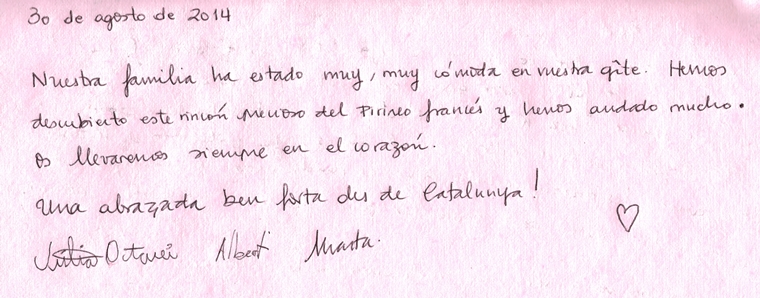 30 de agosto de 2014
Nuestra familia ha estado muy, muy cómoda en vuestra gîte. Hemos
descubierto este rincón precioso del Pirineo francés y hemos andado mucho.
Os llevaremos siempre en el corazón.
Una abraçada ben forta des de Catalunya!
Octavi Albert Marta.